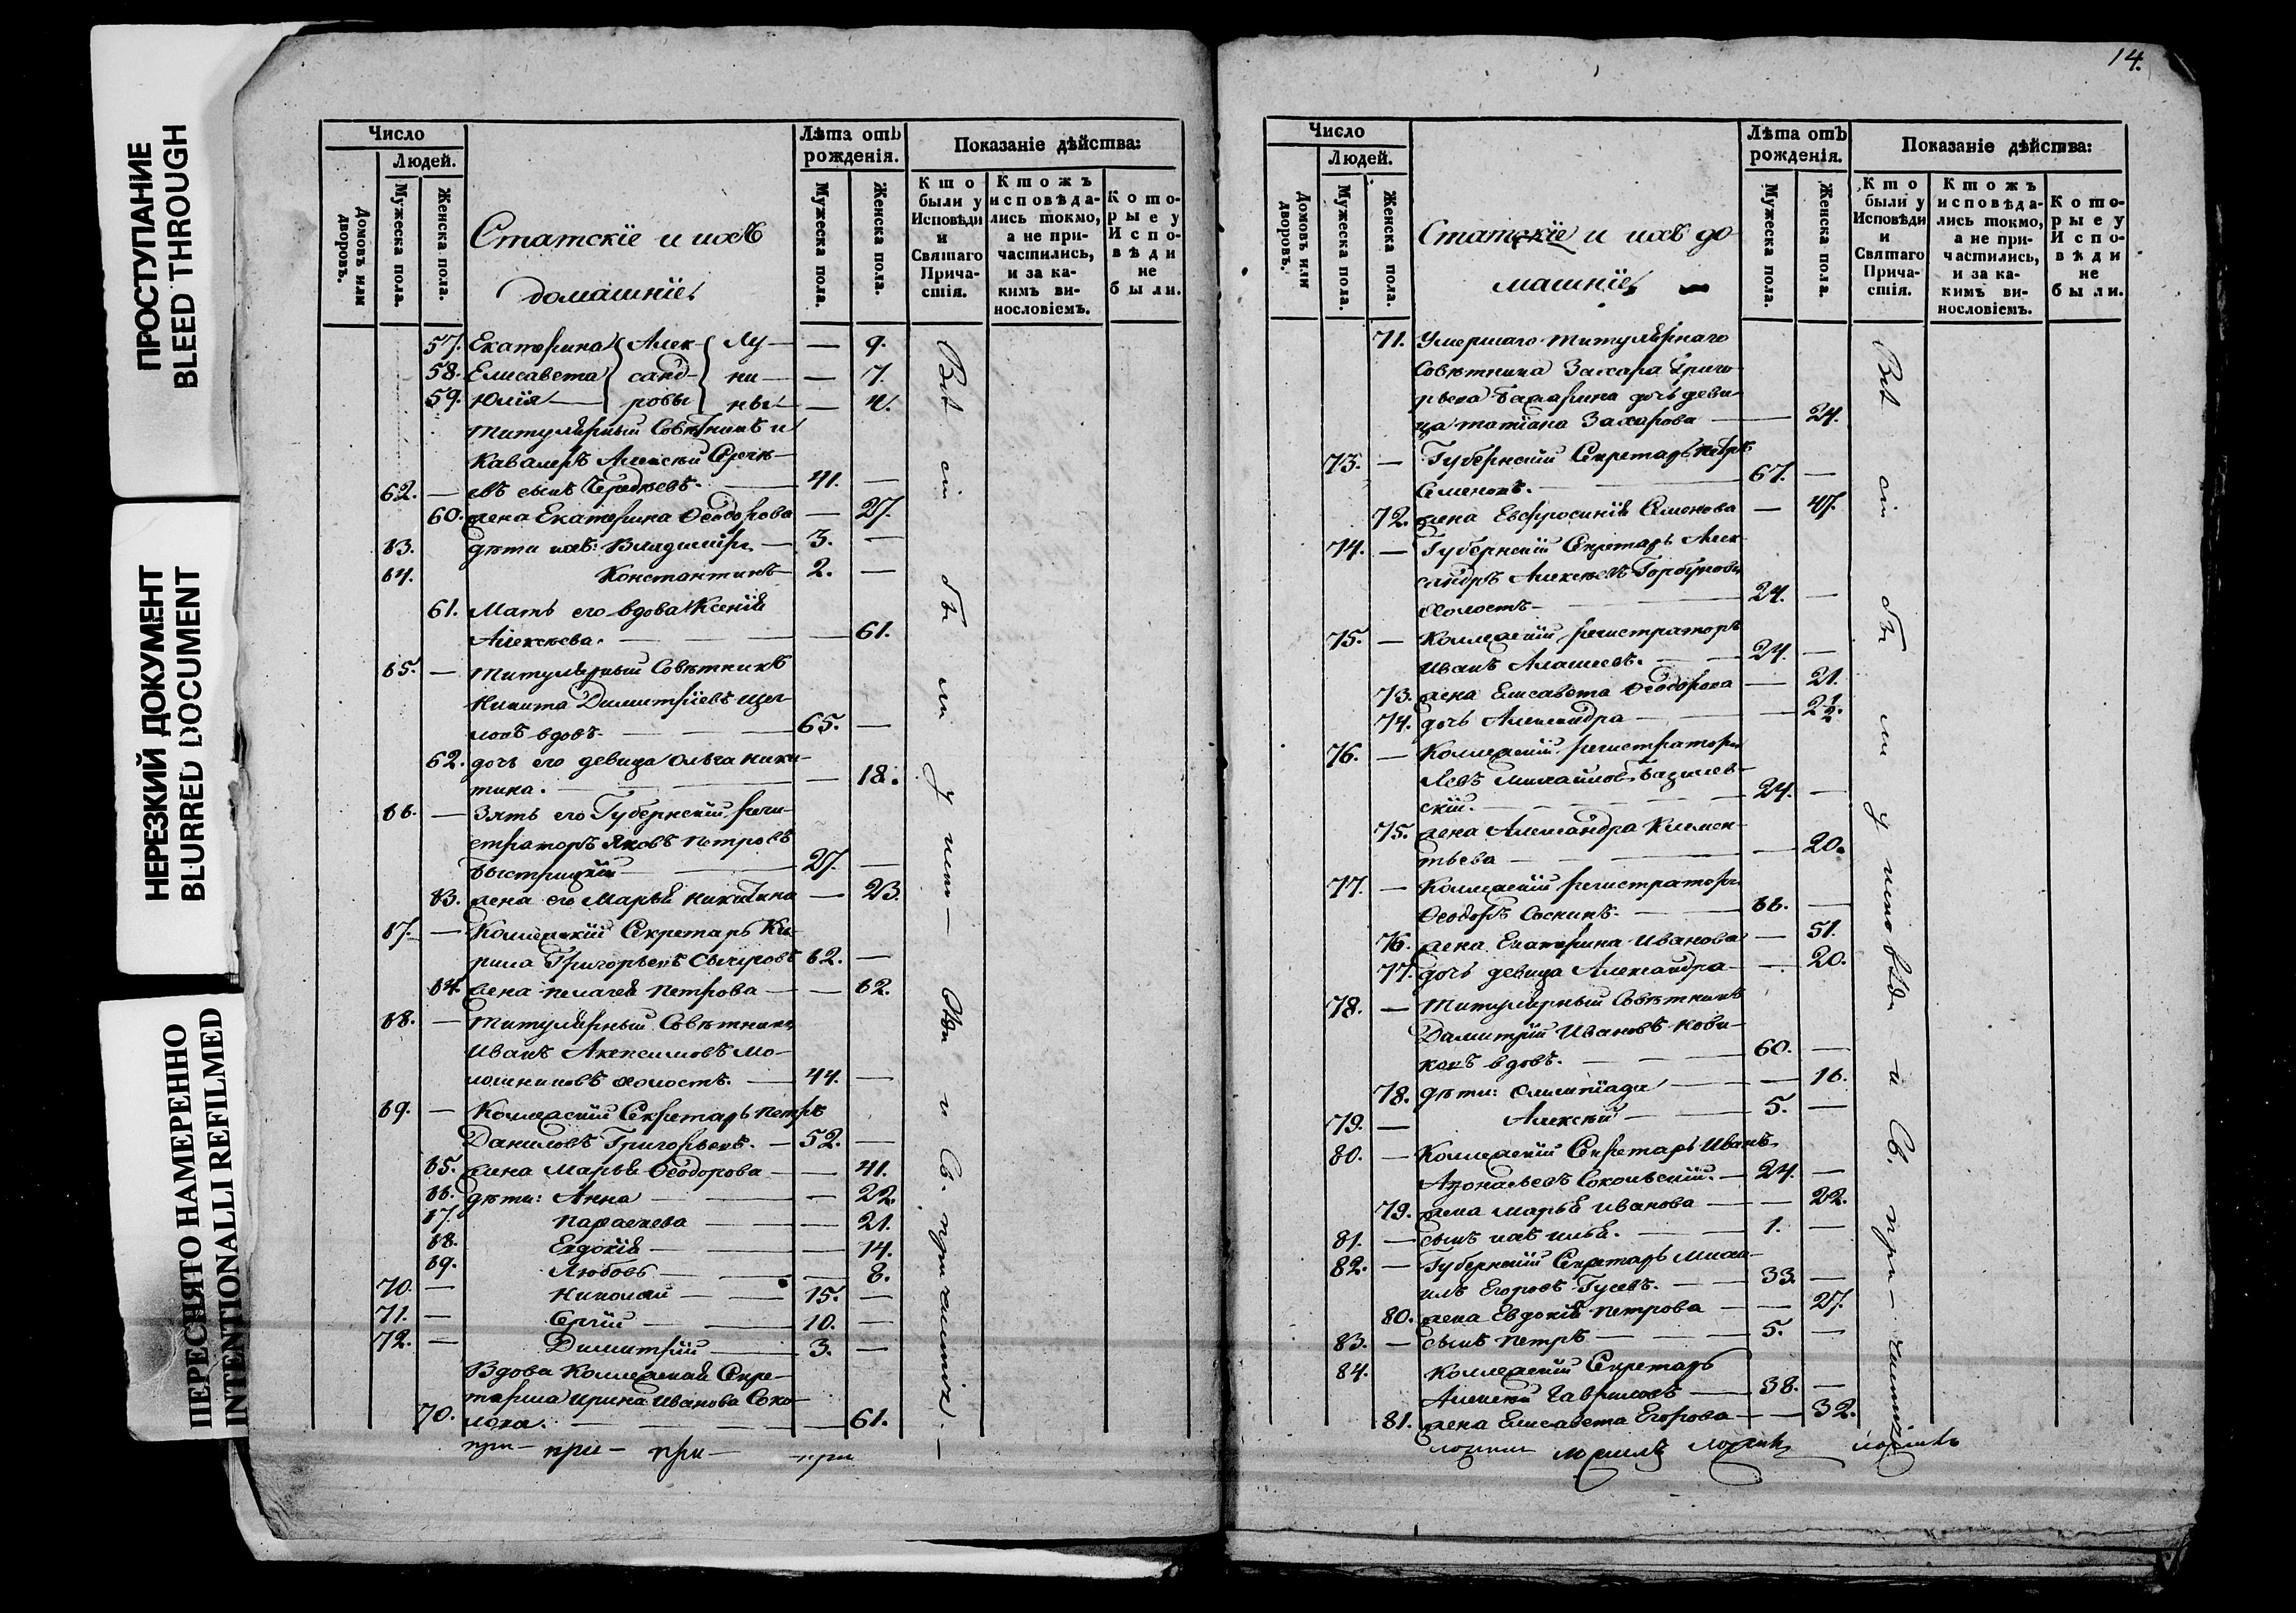 ПРОСТУПАНИЕ
BLEED THROUGH
НЕРЕЗКИЙ ДОКУМЕНТ
BLURRED DOCUMENT
ПЕРЕСНЯТО НАМЕРЕННО
INTENTIONALLI REFILMED
Число
Людей.
Домовъ или дворовъ.
Мужеска пола.
Женска пола.
Статскіе и ихъ
домашніе
Лѣта отъ рожденія.
Мужеска пола.
Женска пола.
Показаніе дѣйства:
Кто были у Исповѣди и Святаго Прича-стія.
Ктожъ исповѣда-лись токмо, а не при-частились, и за ка-кимъ ви-нословіемъ.
Кото-рые у Испо-вѣди не были.
57. Екатерина Алек- Лу- — 9.
58. Елисавета санд- ки- — 7.
59. Юлія ровы ны — 4.
Титулярный Совѣтникъ и
Кавалеръ Алексѣй Сергѣ-
62. — евъ сынъ 41. —
60. жена Екатерина Ѳеодорова — 27.
63. дѣти ихъ: Владиміръ — 3. —
64. Константинъ 2. —
61. Мать его вдова Ксенія
Алексѣева. — 61.
65. — Титулярный Совѣтникъ
Никита Димитріевъ Щег-
ловъ вдовъ. 65. —
62. дочь его девица Ольга Ники-
тина. — 18.
66. — Зять его Губернскій реги-
страторъ Яковъ Петровъ
Быстрицкій 27. —
63. жена его Марья Никитина — 23.
67. — Коллежскій Секретарь Ки-
рила Григорьевъ 62. —
64. жена Пелагея Петрова — 62.
68. — Титулярный Совѣтникъ
Иванъ Мо-
лошниковъ холостъ. — 44. —
69. — Коллежскій Секретарь Петръ
Даниловъ Григорьевъ. — 52. —
65. жена Марья Ѳеодорова — 41.
66. дѣти: Анна — 22.
67. Параскева — 21.
68. Евдокія — 14.
69. Любовь — 8.
70. — Николай — 15. —
71. — Сергій — 10. —
72. — Димитрій — 3. —
Вдова Коллежская Секре-
тарша Ирина Иванова Соко-
70. лова. — 61.
Всѣ сіи бы ли у испо- вѣди и Св. причастія. —
при- при- при- при
14.
Число
Людей.
Домовъ или дворовъ.
Мужеска пола.
Женска пола.
Статскіе и ихъ до
машніе —
Лѣта отъ рожденія.
Мужеска пола.
Женска пола.
Показаніе дѣйства:
Кто были у Исповѣди и Святаго Прича-стія.
Ктожъ исповѣда-лись токмо, а не при-частились, и за ка-кимъ ви-нословіемъ.
Кото-рые у Испо-вѣди не были.
71. Умершаго титулярнаго
Совѣтника Захара Григо-
рьева дочь деви-
ца Татіана Захарова — 24.
73. — Губернскій Секретарь Петръ
Семеновъ. 67. —
72. жена Евфросинія Семенова — 47.
74. — Губернскій Секретарь Алек-
сандръ Алексѣевъ Горбуновъ
холостъ — 24. —
75. — Коллежскій регистраторъ
Иванъ 24. —
73. жена Елисавета Ѳеодорова — 21.
74. дочь Александра — 2½.
76. — Коллежскій регистраторъ
Левъ Михайловъ Базилев-
скій. 24. —
75. жена Александра Климен-
тьева — 20.
77. — Коллежскій регистраторъ
Ѳеодоръ Соснинъ. 66. —
76. жена Екатерина Иванова — 51.
77. дочь девица Александра — 20.
78. — Титулярный Совѣтникъ
Димитрій Ивановъ Нови-
ковъ вдовъ. 60. —
78. дѣти: Олимпіада — 16.
79. — Алексѣй — 5. —
80. — Коллежскій Секретарь Иванъ
Сокольскій. — 24. —
79. жена Марья Иванова — 22.
81. — сынъ ихъ Илья. 1. —
82. — Губернскій Секретарь Миха-
илъ Егоровъ Гусевъ. 33. —
80. жена Евдокія Петрова — 27.
83. — сынъ Петръ — 5. —
84. Коллежскій Секретарь
Алексѣй Гавриловъ — 38. —
81. жена Елисавета Егорова — 32.
Всѣ сіи бы ли у исповѣди и Св. при- частія